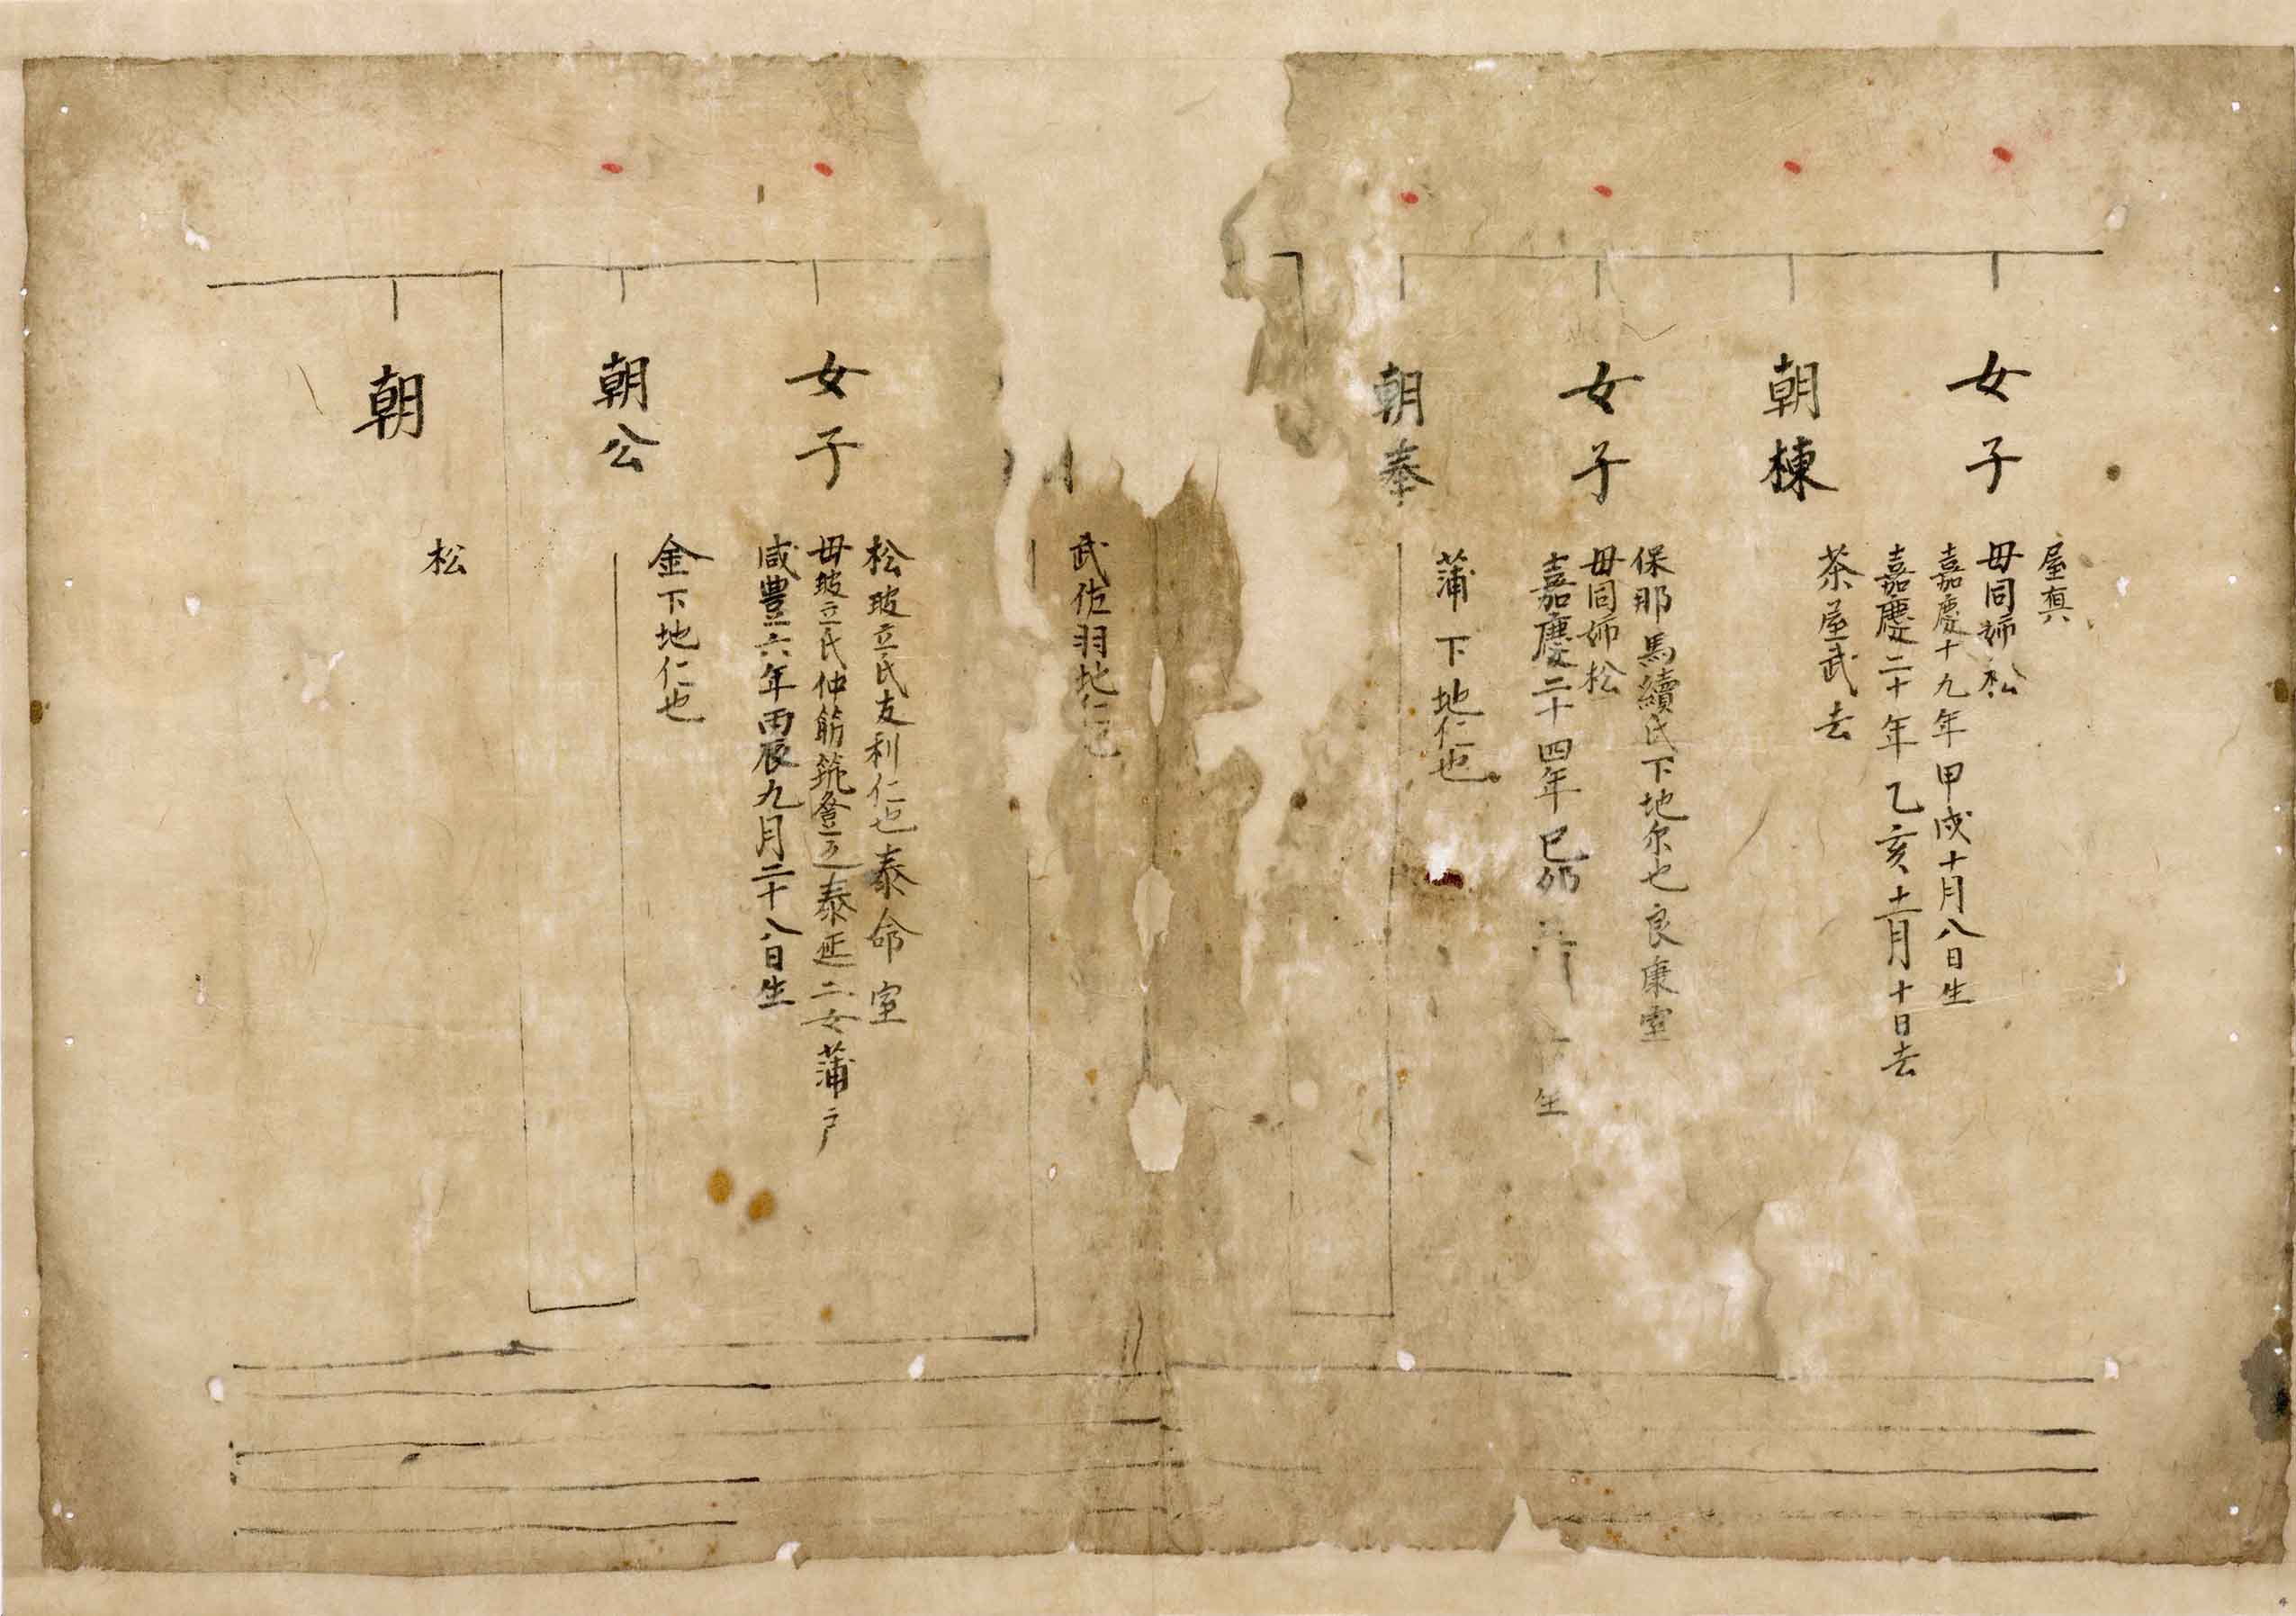 女子
屋真
母同姉松
嘉慶十九年甲戌十月八日生
嘉慶二十年乙亥十二月十日去
朝棟
茶屋武去
女子
保那馬續氏下地尔也良康室
母同姉松
嘉慶二十四年己卯
生
朝奉
蒲下地仁也
武佐羽地仁也
女子
松玻立氏友利仁也泰命室
母玻立氏仲筋筑登之泰延二女蒲戸
咸豊六年丙辰九月二十八日生
朝公
金下地仁也
朝
松